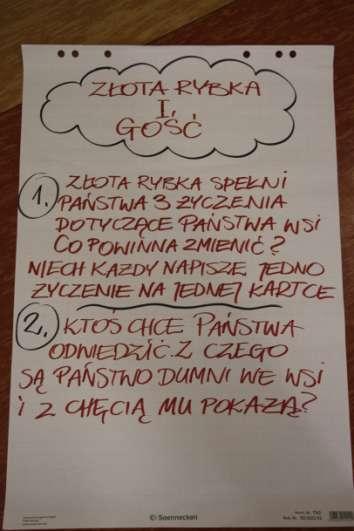 ZŁOTA RYBKA
I,
GOŚĆ
1. ZŁOTA RYBKA SPEŁNI
PAŃSTWA 3 ŻYCZENIA
DOTYCZĄCE PAŃSTWA WSI
CO POWINNA ZMIENIĆ?
NIECH KAŻDY NAPISZE JEDNO
ŻYCZENIE NA JEDNEJ KARTCE
2. KTOŚ CHCE PAŃSTWA
ODWIEDZIĆ. Z CZEGO
SĄ PAŃSTWO DUMNI WE WSI
I Z CHĘCIĄ MU POKAŻĄ?
Soennecken